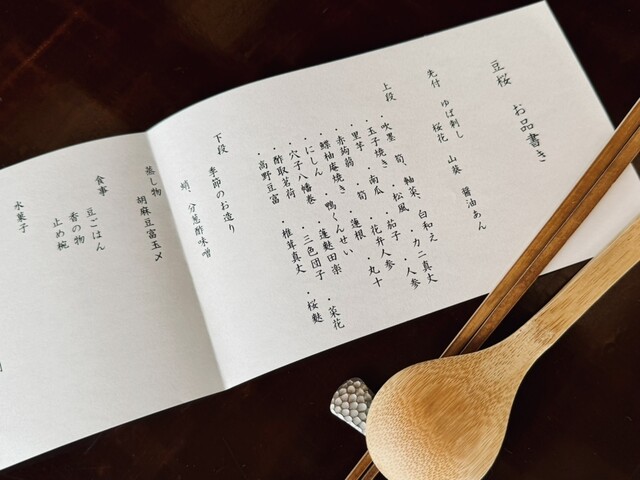 豆桜　お品書き
先付　ゆば刺し
桜花　山葵　醤油あん
上段
・吹寄　筍、軸菜、白和え
・玉子焼き　・松風　・カニ真丈
・里芋　・南瓜　・茄子　・人参
・赤蒟蒻　・筍　・蓮根　・花弁人参　・丸十
・鰆柚庵焼き　・鴨くんせい
・にしん　・蓬麩田楽　・菜花
・穴子八幡巻　・三色団子　・桜麩
・酢取茗荷　・椎茸真丈
・高野豆富
下段　季節のお造り
蛸　分葱酢味噌
蒸し物　胡麻豆富玉〆
食事　豆ごはん
香の物
止め椀
水菓子